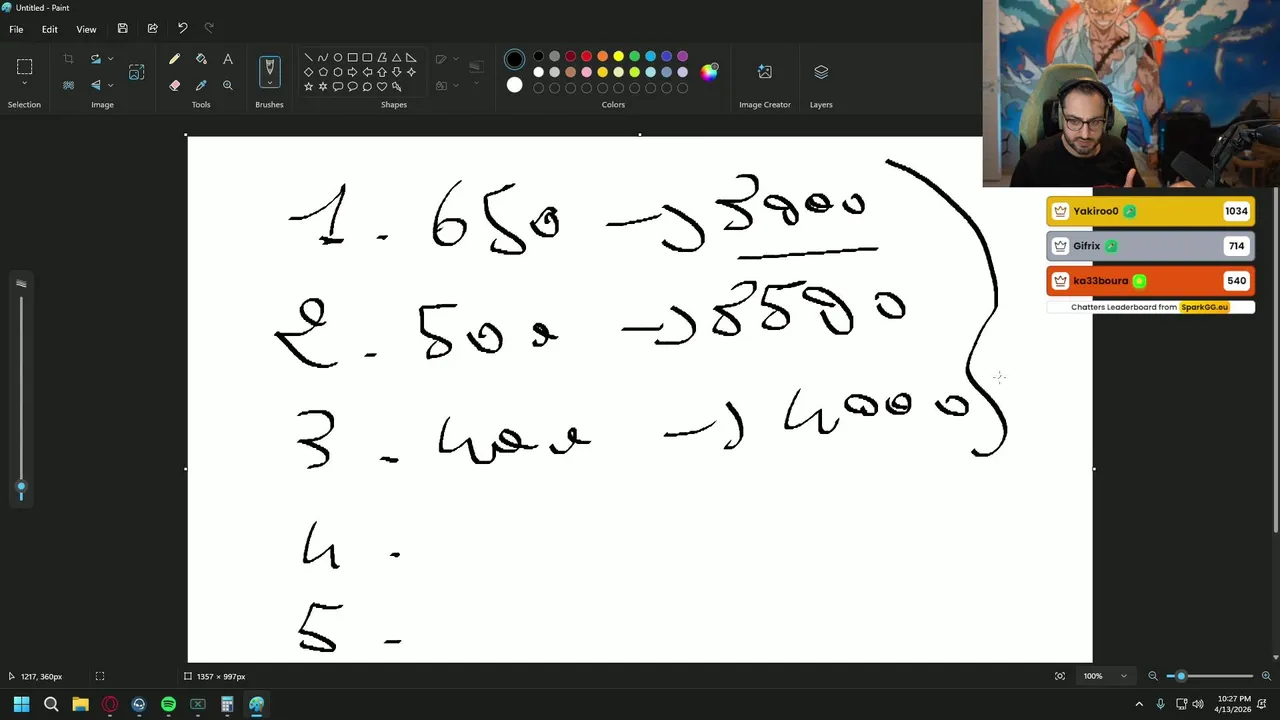 Untitled - Paint
File Edit View
Selection
Image
Tools
Brushes
Shapes
Colors
Image Creator
Layers
1. 650 → 3900
2. 500 → 3500
3. 400 → 4000
4.
5.
Yakiroo0 1034
Gifrix 714
ka33boura 540
Chatters Leaderboard from SparkGG.eu
1217, 360px
1357 × 997px
100%
10:27 PM
4/13/2026